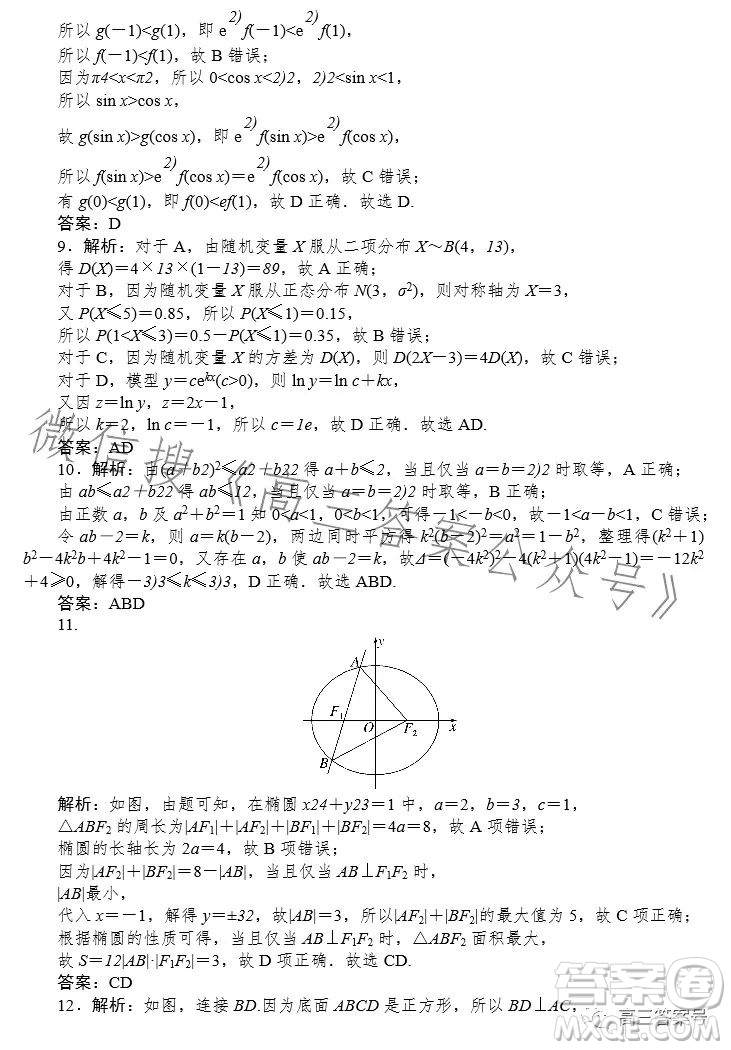 所以 g(－1)<g(1)，即 e2)f(－1)<e2)f(1)，
所以 f(－1)<f(1)，故 B 错误；
因为π4<x<π2，所以 0<cos x<2)2，2)2<sin x<1，
所以 sin x>cos x，
故 g(sin x)>g(cos x)，即 e2)f(sin x)>e2)f(cos x)，
所以 f(sin x)>e2)f(cos x)＝e2)f(cos x)，故 C 错误；
有 g(0)<g(1)，即 f(0)<ef(1)，故 D 正确．故选 D.
答案：D
9．解析：对于 A，由随机变量 X 服从二项分布 X～B(4，13)，
得 D(X)＝4×13×(1－13)＝89，故 A 正确；
对于 B，因为随机变量 X 服从正态分布 N(3，σ²)，则对称轴为 X＝3，
又 P(X≤5)＝0.85，所以 P(X≤1)＝0.15，
所以 P(1<X≤3)＝0.5－P(X≤1)＝0.35，故 B 错误；
对于 C，因为随机变量 X 的方差为 D(X)，则 D(2X－3)＝4D(X)，故 C 错误；
对于 D，模型 y＝ceᵏˣ(c>0)，则 ln y＝ln c＋kx，
又因 z＝ln y，z＝2x－1，
所以 k＝2，ln c＝－1，所以 c＝1e，故 D 正确．故选 AD.
答案：AD
10．解析：由(a＋b2)²≤a2＋b22 得 a＋b≤2，当且仅当 a＝b＝2)2 时取等，A 正确；
由 ab≤a2＋b22 得 ab≤12，当且仅当 a＝b＝2)2 时取等，B 正确；
由正数 a，b 及 a²＋b²＝1 知 0<a<1，0<b<1，可得－1<－b<0，故－1<a－b<1，C 错误；
令 ab－2＝k，则 a＝k(b－2)，两边同时平方得 k²(b－2)²＝a²＝1－b²，整理得(k²＋1)
b²－4k²b＋4k²－1＝0，又存在 a，b 使 ab－2＝k，故Δ＝(－4k²)²－4(k²＋1)(4k²－1)＝－12k²
＋4≥0，解得－3)3≤k≤3)3，D 正确．故选 ABD.
答案：ABD
11.
y
A
F₁
O
F₂
x
B
解析：如图，由题可知，在椭圆 x24＋y23＝1 中，a＝2，b＝3，c＝1，
△ABF₂ 的周长为|AF₁|＋|AF₂|＋|BF₁|＋|BF₂|＝4a＝8，故 A 项错误；
椭圆的长轴长为 2a＝4，故 B 项错误；
因为|AF₂|＋|BF₂|＝8－|AB|，当且仅当 AB⊥F₁F₂ 时，
|AB|最小，
代入 x＝－1，解得 y＝±32，故|AB|＝3，所以|AF₂|＋|BF₂|的最大值为 5，故 C 项正确；
根据椭圆的性质可得，当且仅当 AB⊥F₁F₂ 时，△ABF₂ 面积最大，
故 S＝12|AB|·|F₁F₂|＝3，故 D 项正确．故选 CD.
答案：CD
12．解析：如图，连接 BD.因为底面 ABCD 是正方形，所以 BD⊥AC，
微信搜《高三答案公众号》
答案圈
高三答案号